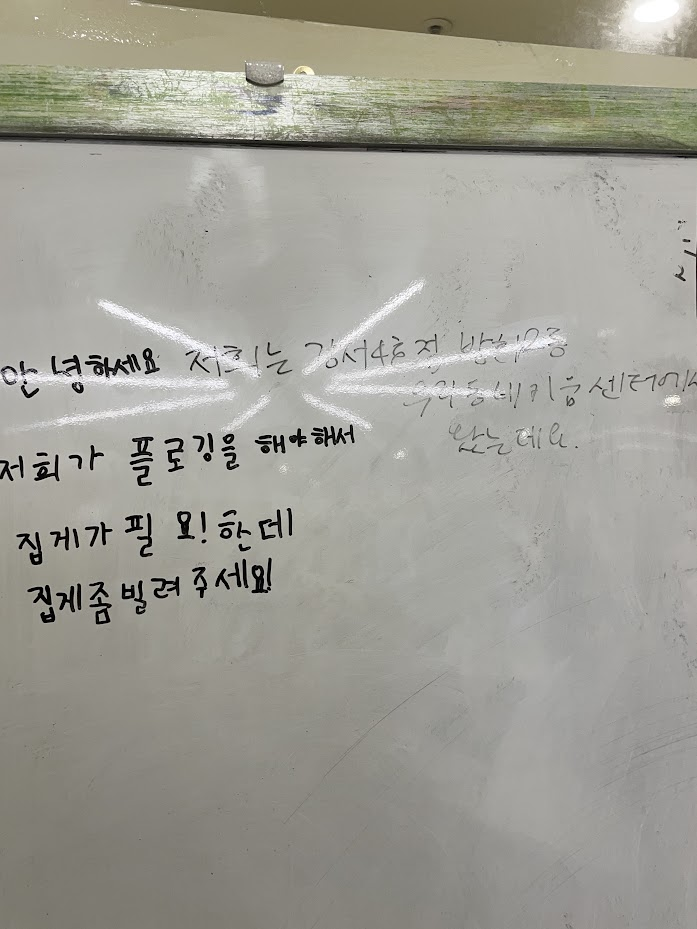 안녕하세요 저희는 강서4호점 방화2동
우리동네키움센터에서
왔는데요.
저희가 플로깅을 해야해서
집게가 필요!한데
집게좀빌려주세요!